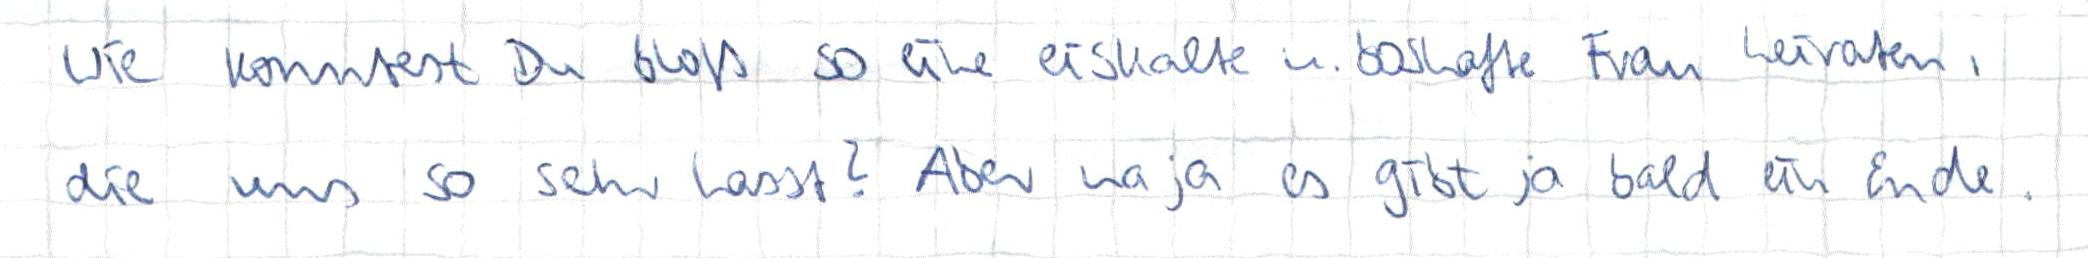 Wie konntest Du bloß so eine eiskalte u. boshafte Frau heiraten,
die uns so sehr hasst? Aber na ja es gibt ja bald ein Ende.